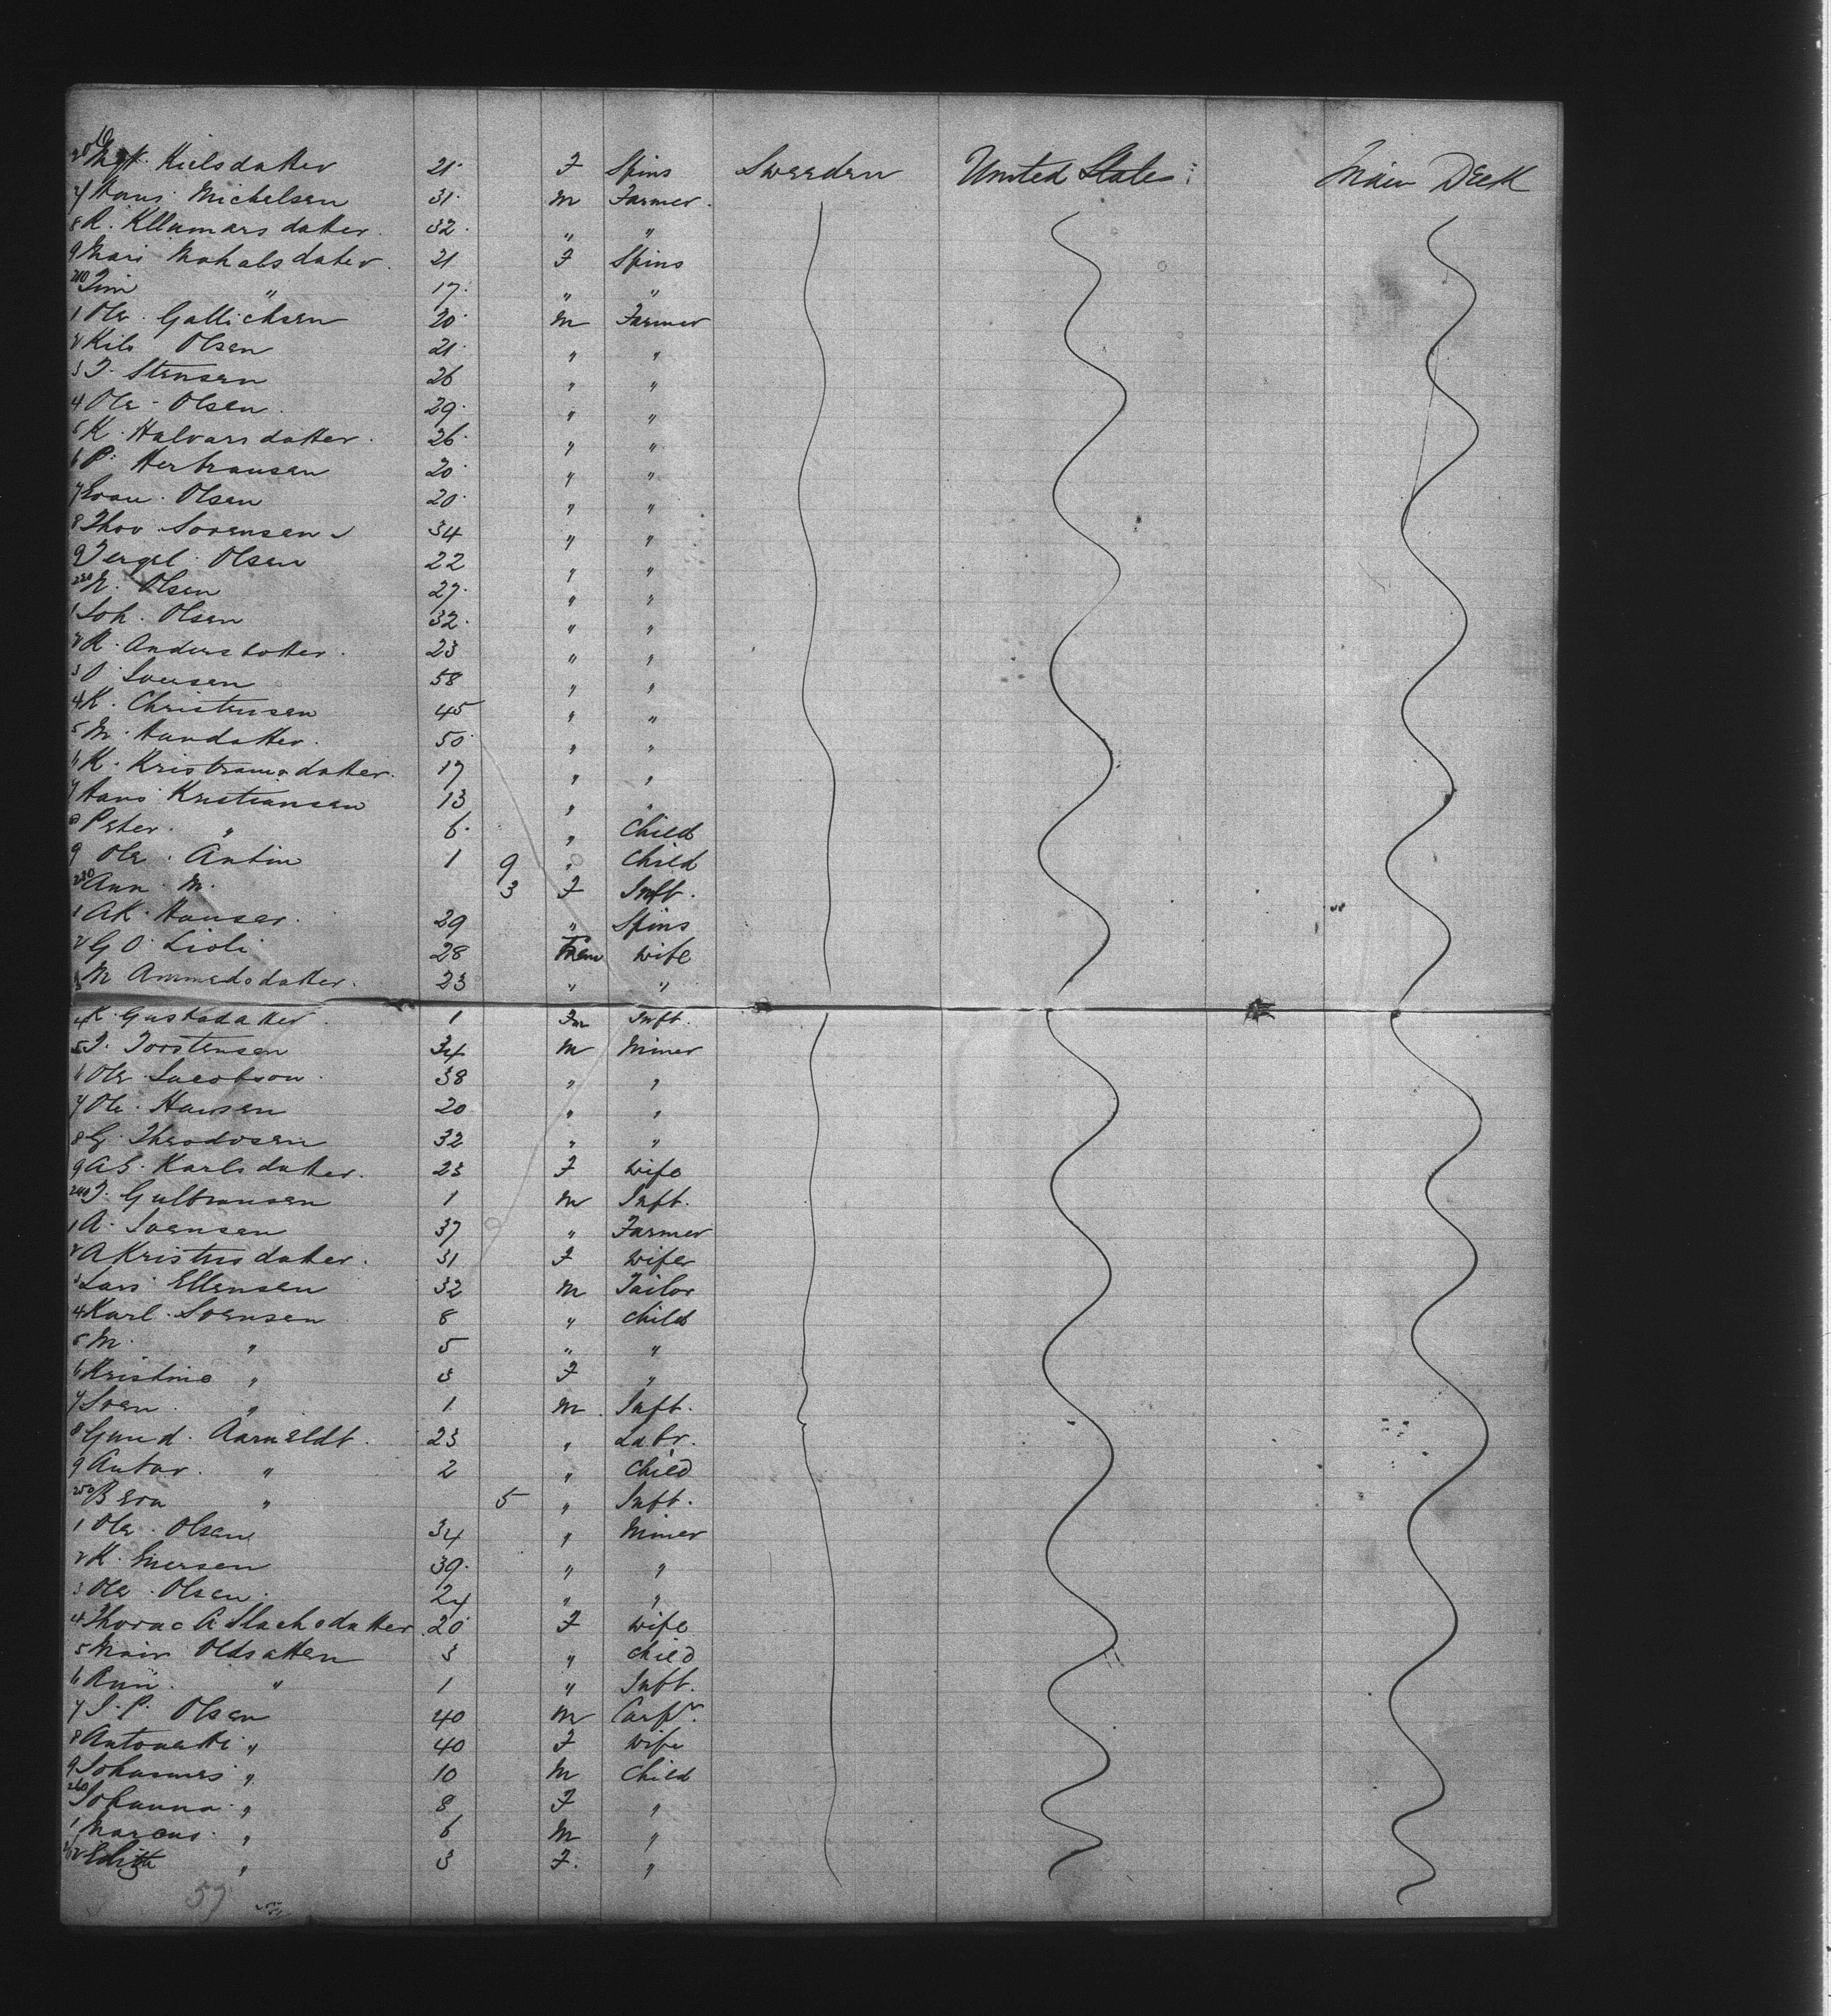 Kielsdatter 21 F Spins Sweeden United States Main Deck
7 Hans Michelsen 31 M Farmer
8 R. Kllamarsdatter 32 " "
9 Mari Mahalsdater 21 F Spins
210 " 17 " "
1 Ole Gallichsen 20 M Farmer
2 Kils Olsen 21 " "
3 T. Stensen 26 " "
4 Ole Olsen 29 " "
5 K. Halvarsdatter 26 " "
6 P. Herbransen 20 " "
7 Olsen 20 " "
8 Thov Sorensen 34 " "
9 Tergel Olsen 22 " "
220 N. Olsen 27 " "
1 Joh. Olsen 32 " "
2 R. Andersdotter 23 " "
3 O 58 " "
4 K. Christensen 45 " "
5 M. Hansdatter 50 " "
6 K. Kristiansdatter 17 " "
7 Hans Kristiansen 13 " "
8 Peter " 6 " Child
9 Ole Antin 1 9 " Child
230 Ann M. 3 F Inft.
1 AK Hanser 29 " Spins
2 G O Lioli 28 Fem Wife
3 M Ammedsdatter 23 " "
4 K Gustadatter 1 Fm Inft.
5 T. Torstensen 34 M Miner
6 Ole Jacobson 38 " "
7 Ole Hansen 20 " "
8 G. Theodosen 32 " "
9 A S. Karlsdatter 23 F Wife
240 T. Gulbransen 1 M Inft.
1 A. Soensen 37 " Farmer
2 A Kristnsdatter 31 F Wifer
3 Lars Ellensen 32 M Tailor
4 Karl Soensen 8 " Child
5 M. " 5 " "
6 Kristine " 3 F "
7 Soen " 1 M Inft.
8 Gund. Aarneldt 23 " Labr.
9 Antor " 2 " Child
250 Bern " 5 " Inft.
1 Ole Olsen 34 " Miner
2 K. Enersen 39 " "
3 Ole Olsen 24 " "
4 Thorac A Slachsdatter 20 F Wife
5 Main Oldsatten 3 " Child
6 " 1 " Inft.
7 J. P. Olsen 40 M Carpr.
8 Antonette " 40 F Wife
9 Johannes " 10 M Child
260 Johanna " 8 F "
1 Marcus " 6 M "
2 Edith " 3 F "
57